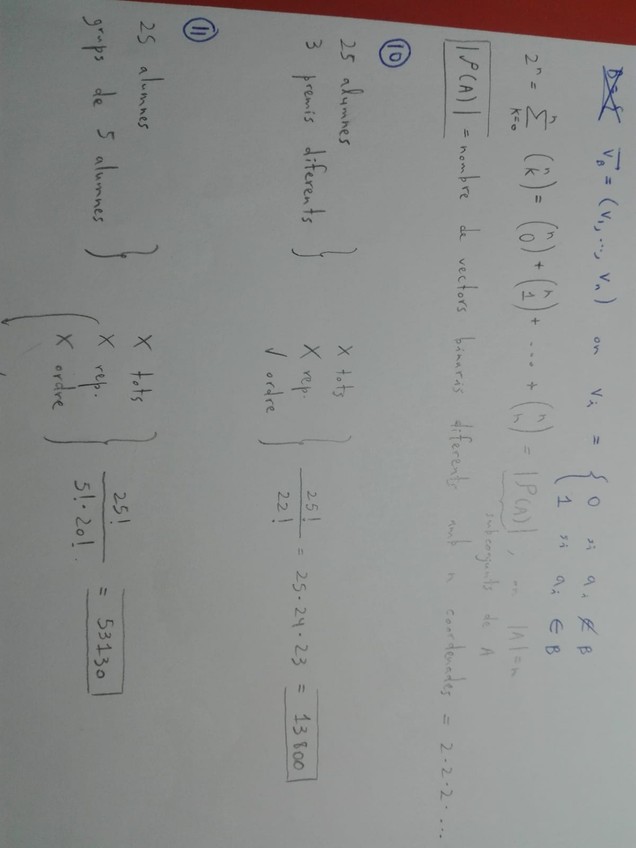 v⃗_B = (v₁, ..., vₙ) on vᵢ = { 0 si aᵢ ∉ B
1 si aᵢ ∈ B
2ⁿ = Σ_{k=0}^{n} (n k) = (n 0) + (n 1) + ... + (n n) = |P(A)|, on |A| = n
subconjunts de A
|P(A)| = nombre de vectors binaris diferents amb n coordenades = 2·2·2·...
10
25 alumnes
3 premis diferents }
X tots
X rep.
✓ ordre }
25!/22! = 25·24·23 = 13800
11
25 alumnes
grups de 5 alumnes }
X tots
X rep.
X ordre }
25!/(5!·20!) = 53130